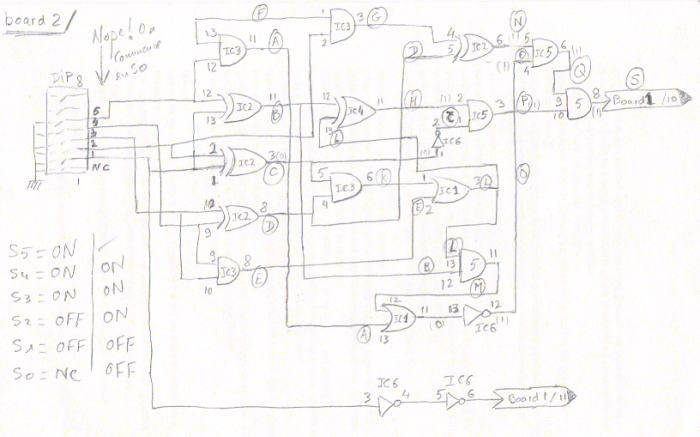 board 2/
Nope! On
Commence
au S0
DiP 8
5
4
3
2
1
NC
1
13
12
IC3
F
A
1
2
IC3
3
G
12
13
IC2
11
B
2
1
IC2
3
(0)
C
10
9
IC2
8
D
9
10
IC3
8
E
12
13
IC4
11
H
L
5
4
IC3
6
K
D
4
5
IC2
6
(1)
N
(1)
5
4
O
IC5
6
(1)
Q
9
10
5
8
(1)
S
Board 1 / 10
(1)
2
1
C
IC5
3
P
(1)
2
IC6
(0)
1
1
2
E
IC1
3
L
O
L
13
12
B
5
11
M
12
13
A
IC1
11
(0)
13
IC6
12
(1)
IC6
3
4
IC6
5
6
Board 1 / 11
S5 = ON
S4 = ON ON
S3 = ON ON
S2 = OFF ON
S1 = OFF OFF
S0 = NC OFF